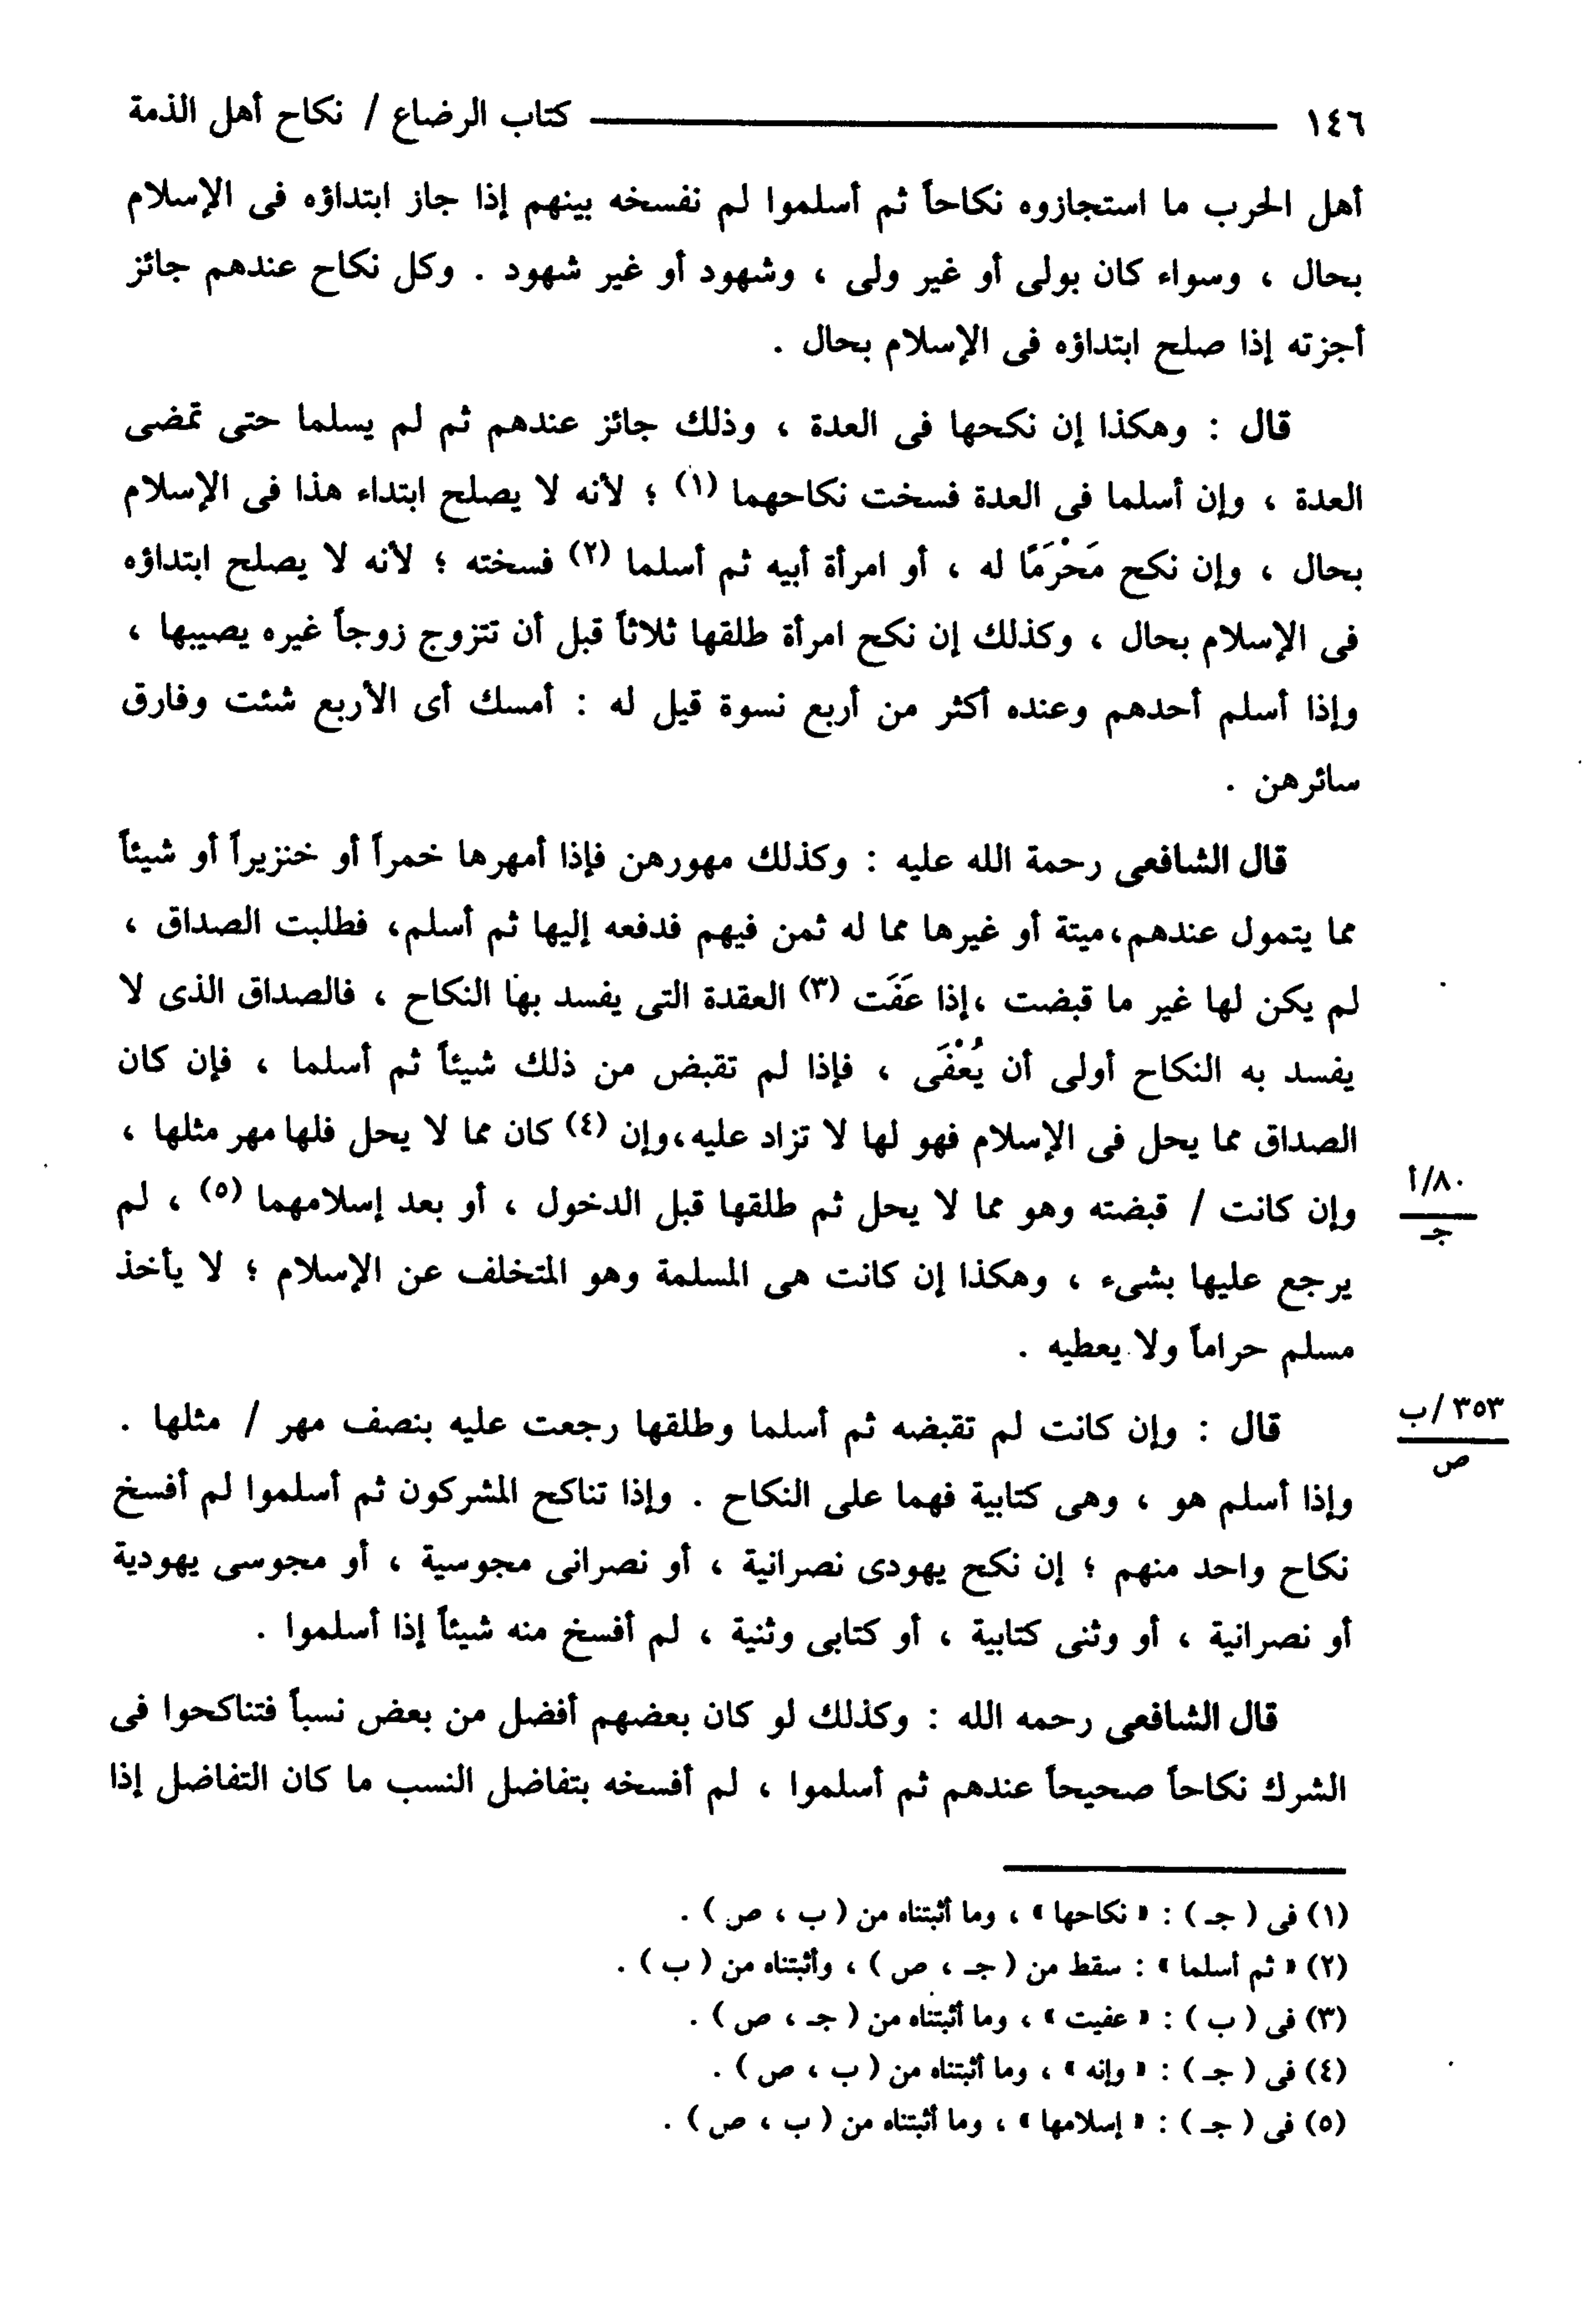 ١٤٦ ــــــــــــــــــــــ كتاب الرضاع / نكاح أهل الذمة
أهل الحرب ما استجازوه نكاحاً ثم أسلموا لم نفسخه بينهم إذا جاز ابتداؤه فى الإسلام
بحال ، وسواء كان بولى أو غير ولى ، وشهود أو غير شهود . وكل نكاح عندهم جائز
أجزته إذا صلح ابتداؤه فى الإسلام بحال .
قال : وهكذا إن نكحها فى العدة ، وذلك جائز عندهم ثم لم يسلما حتى تمضى
العدة ، وإن أسلما فى العدة فسخت نكاحهما (١) ؛ لأنه لا يصلح ابتداء هذا فى الإسلام
بحال ، وإن نكح مَحْرَمًا له ، أو امرأة أبيه ثم أسلما (٢) فسخته ؛ لأنه لا يصلح ابتداؤه
فى الإسلام بحال ، وكذلك إن نكح امرأة طلقها ثلاثاً قبل أن تتزوج زوجاً غيره يصيبها ،
وإذا أسلم أحدهم وعنده أكثر من أربع نسوة قيل له : أمسك أى الأربع شئت وفارق
سائرهن .
قال الشافعى رحمة الله عليه : وكذلك مهورهن فإذا أمهرها خمراً أو خنزيراً أو شيئاً
مما يتمول عندهم،ميتة أو غيرها مما له ثمن فيهم فدفعه إليها ثم أسلم، فطلبت الصداق ،
لم يكن لها غير ما قبضت ،إذا عَفَت (٣) العقدة التى يفسد بها النكاح ، فالصداق الذى لا
يفسد به النكاح أولى أن يُعْفَى ، فإذا لم تقبض من ذلك شيئاً ثم أسلما ، فإن كان
الصداق مما يحل فى الإسلام فهو لها لا تزاد عليه،وإن (٤) كان مما لا يحل فلها مهر مثلها ،
وإن كانت / قبضته وهو مما لا يحل ثم طلقها قبل الدخول ، أو بعد إسلامهما (٥) ، لم
٨٠/أ
جـ
يرجع عليها بشىء ، وهكذا إن كانت هى المسلمة وهو المتخلف عن الإسلام ؛ لا يأخذ
مسلم حراماً ولا يعطيه .
قال : وإن كانت لم تقبضه ثم أسلما وطلقها رجعت عليه بنصف مهر / مثلها .
٣٥٣/ب
ص
وإذا أسلم هو ، وهى كتابية فهما على النكاح . وإذا تناكح المشركون ثم أسلموا لم أفسخ
نكاح واحد منهم ؛ إن نكح يهودى نصرانية ، أو نصرانى مجوسية ، أو مجوسى يهودية
أو نصرانية ، أو وثنى كتابية ، أو كتابى وثنية ، لم أفسخ منه شيئاً إذا أسلموا .
قال الشافعى رحمه الله : وكذلك لو كان بعضهم أفضل من بعض نسباً فتناكحوا فى
الشرك نكاحاً صحيحاً عندهم ثم أسلموا ، لم أفسخه بتفاضل النسب ما كان التفاضل إذا
(١) فى ( جـ ) : « نكاحها » ، وما أثبتناه من ( ب ، ص ) .
(٢) « ثم أسلما » : سقط من ( جـ ، ص ) ، وأثبتناه من ( ب ) .
(٣) فى ( ب ) : « عفيت » ، وما أثبتناه من ( جـ ، ص ) .
(٤) فى ( جـ ) : « وإنه » ، وما أثبتناه من ( ب ، ص ) .
(٥) فى ( جـ ) : « إسلامها » ، وما أثبتناه من ( ب ، ص ) .